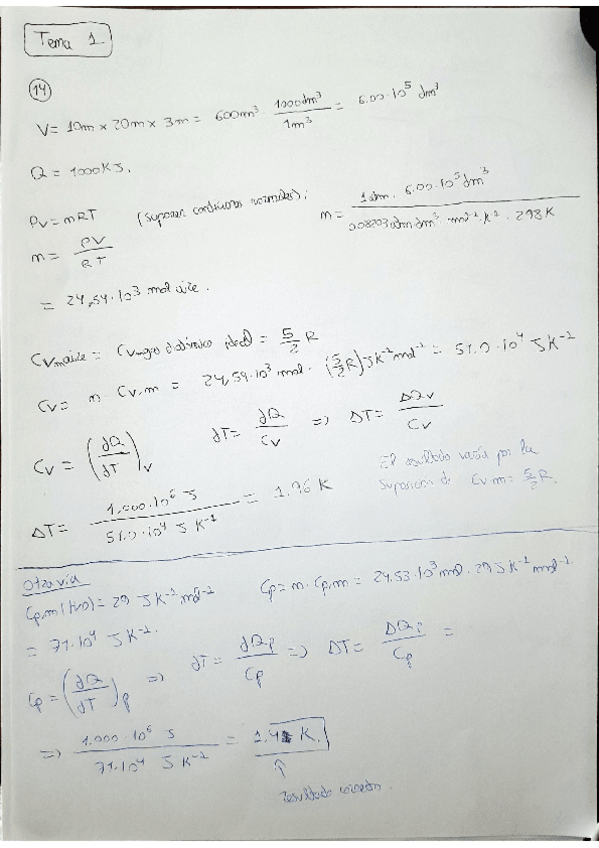 Tema 1
14
V = 10m × 20m × 3m = 600m³ · 1000dm³/1m³ = 6.00·10⁵ dm³
Q = 1000KJ.
PV = nRT (suponer condiciones normales); n = 1 atm · 6.00·10⁵ dm³ / 0.08203 atm dm³ mol⁻¹ K⁻¹ · 298K
n = PV/RT
= 24,54·10³ mol aire.
Cv,m aire = Cv,m gas diatómico ideal = 5/2 R
Cv = n Cv,m = 24,54·10³ mol · (5/2 R) J K⁻¹ mol⁻¹ = 51.0·10⁴ J K⁻¹
Cv = (dQ/dT)v dT = dQ/Cv => ΔT = ΔQv/Cv
ΔT = 1.000·10⁶ J / 51.0·10⁴ J K⁻¹ = 1.96 K
El resultado varía por la
suposición de Cv,m = 5/2 R.
Otra vía
Cp,m = 29 J K⁻¹ mol⁻¹ Cp = n · Cp,m = 24.53·10³ mol · 29 J K⁻¹ mol⁻¹
= 71·10⁴ J K⁻¹.
Cp = (dQ/dT)p => dT = dQp/Cp => ΔT = ΔQp/Cp =
=> 1.000·10⁶ J / 71·10⁴ J K⁻¹ = 1.4 K.
↑
resultado correcto.